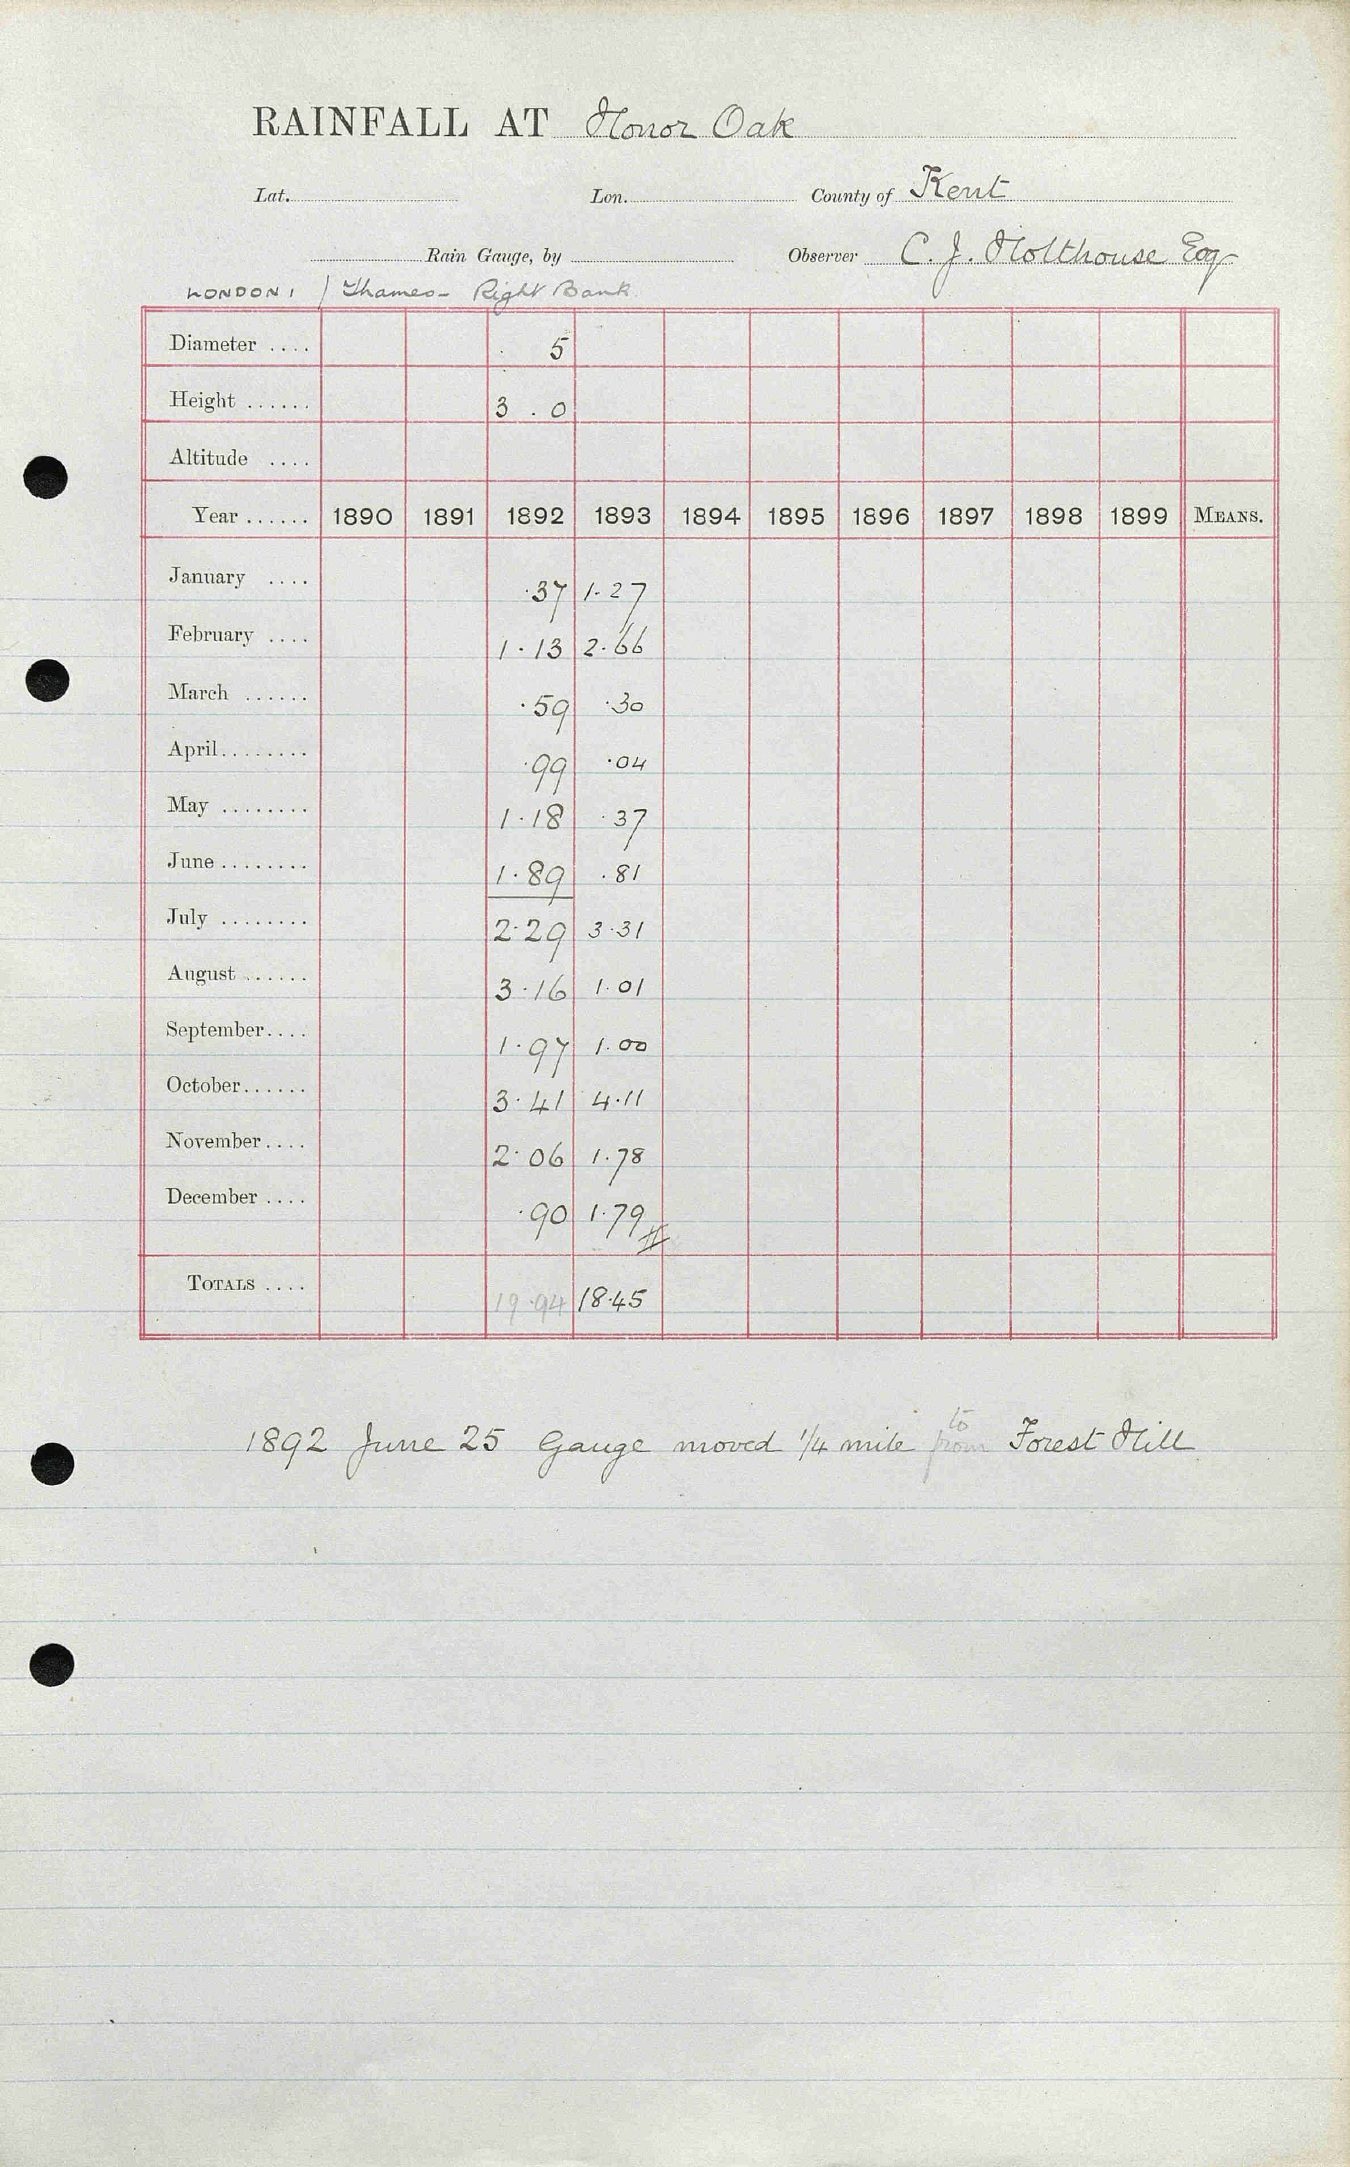 RAINFALL AT Honor Oak
Lat. Lon. County of Kent
Rain Gauge, by Observer C. J. Holthouse Esq
LONDON 1 / Thames - Right Bank
Diameter .... 5
Height ...... 3 . 0
Altitude ....
Year ...... 1890 1891 1892 1893 1894 1895 1896 1897 1898 1899 MEANS.
January .... ·37 1·27
February .... 1·13 2·66
March ...... ·59 ·30
April........ ·99 ·04
May ........ 1·18 ·37
June ........ 1·89 ·81
July ........ 2·29 3·31
August ...... 3·16 1·01
September.... 1·97 1·00
October...... 3·41 4·11
November.... 2·06 1·78
December .... ·90 1·79
TOTALS .... 19·94 18·45
to
1892 June 25 Gauge moved 1/4 mile from Forest Hill